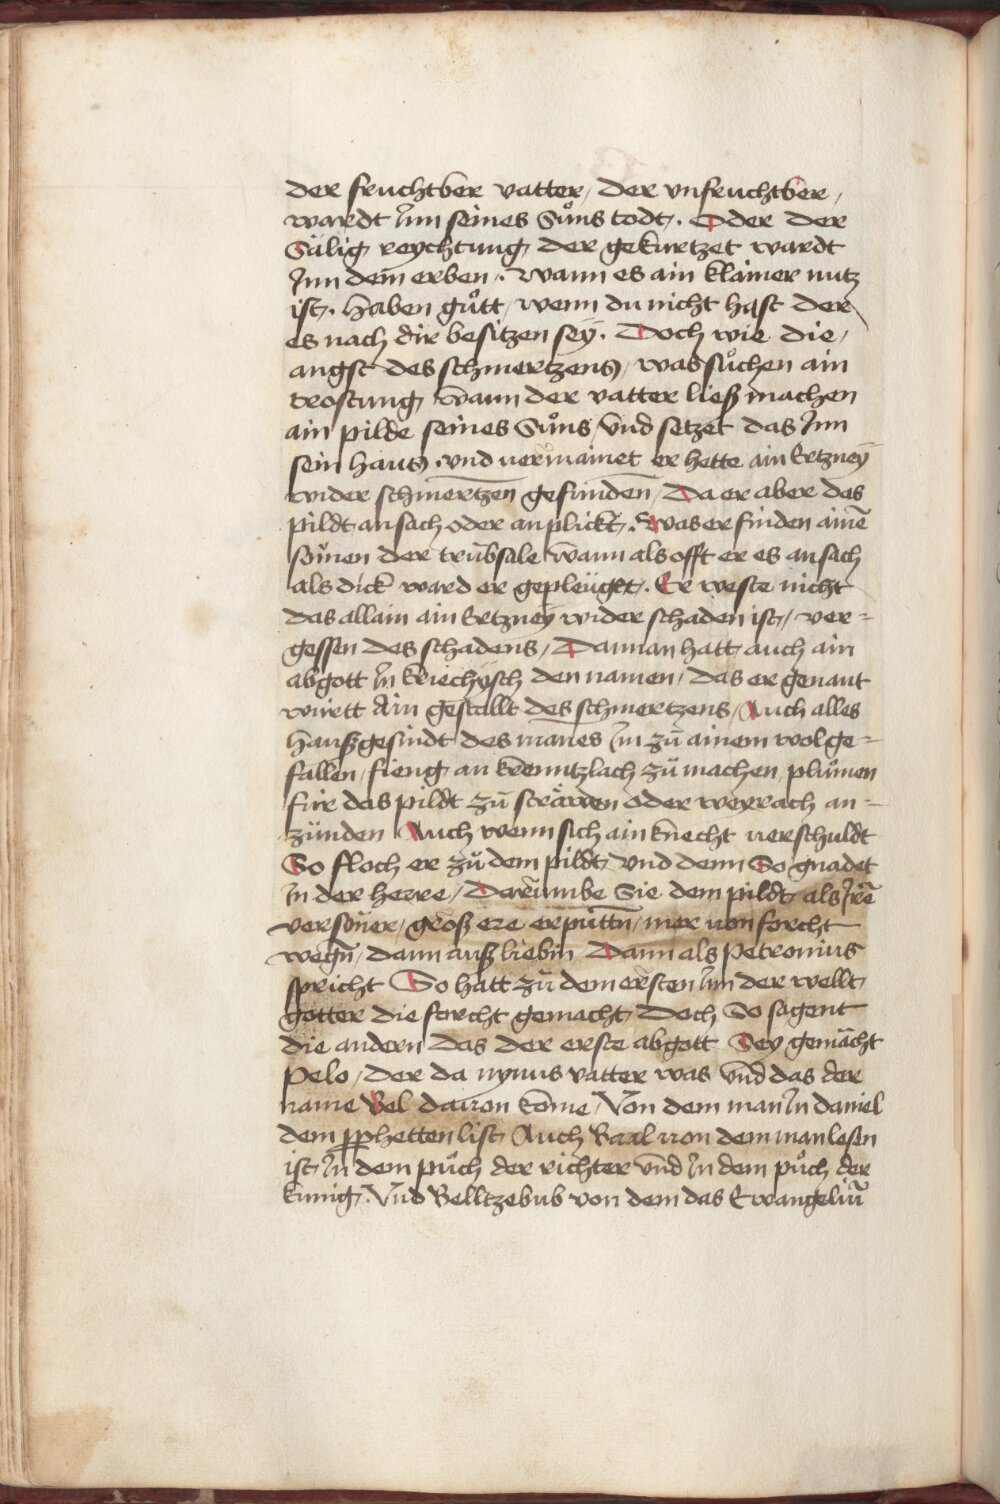 der fruchtber vatter, der vnfruchtber,
wardt Inn seines Suͦns todt. Oder der
Sälig reychtung der gekurtzet wardt
Inn dem̄ erben. wann es ain klainer nutz
ist. haben guͦtt, wenn du nicht hast der
es nach dir besitzen sey. Doch wie die,
angst des schmertzens, was suͦchen ain
trostung wann der vatter ließ machen
ain pilde seines Suͦns, vnd setzet das Inn
sein hauß, vnd uermainet er hette ain Ertzney
wider schmertzen gefunden, Da er aber das
pildt ansach oder anplickt. Was er finden ainē
somen der trübsale wann als offt er es ansach
als dick ward er gepleüget. Er weste nicht
das allain ain Ertzney wider schaden ist, ver=
gessen des schadens, Dannan hatt auch ain
abgott In kriechysch den namen, das er genant
wirtt Ain gestallt des schmertzens, Auch alles
haußgesindt des mañes Im zuͦ ainem wolge=
fallen, fieng an krenntzlach zuͦ machen, pluͦmen
für das pildt zuͦ sträwen oder weyrach an=
zünden Auch wenn sich ain knecht uerschuldt
So floch er zuͦ dem pildt, vnd denn So gnadet
In der herre, Darumbe Sie dem pildt, als Irē
versöner, groß ere erputtn̄, mer von forcht
wegn̄, dann auß liebin Dann als Petronius
spricht So hatt zuͦ dem ersten Inn der wellt,
götter die forcht gemacht Doch So sagent
die andern das der erste abgott Sey gemacht
Pelo, der da nynus vatter was vnd das der
name Bel dauon kōme, Von dem man In daniel
dem pphetten list, Auch Baal von dem man lesen
ist, In dem puͦch der richter vnd In dem puͦch der
künig. Vnd Belltzebub von dem das Ewangeliū